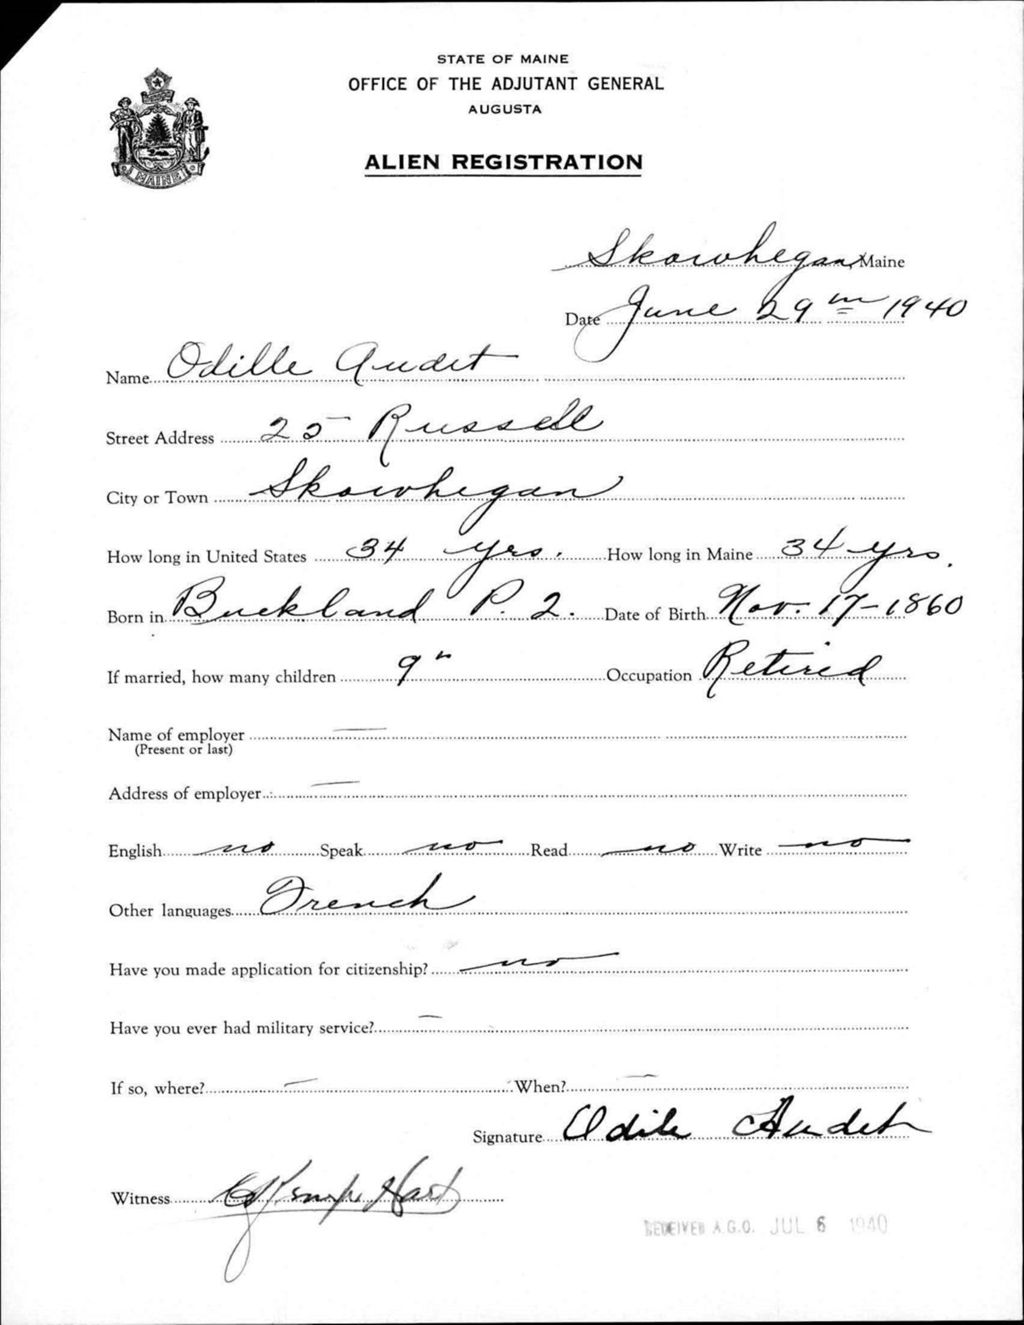 STATE OF MAINE
OFFICE OF THE ADJUTANT GENERAL
AUGUSTA
ALIEN REGISTRATION
MAINE
Skowhegan, Maine
Date June 29th 1940
Name Odille Audet
Street Address 25 Russell
City or Town Skowhegan
How long in United States 34 yrs. How long in Maine 34 yrs.
Born in Buckland P. Q. Date of Birth Nov. 17-1860
If married, how many children 9 Occupation Retired
Name of employer —
(Present or last)
Address of employer —
English no Speak no Read no Write no
Other languages French
Have you made application for citizenship? no
Have you ever had military service? —
If so, where? — When? —
Signature Odile Audet
Witness
RECEIVED A.G.O. JUL 6 1940